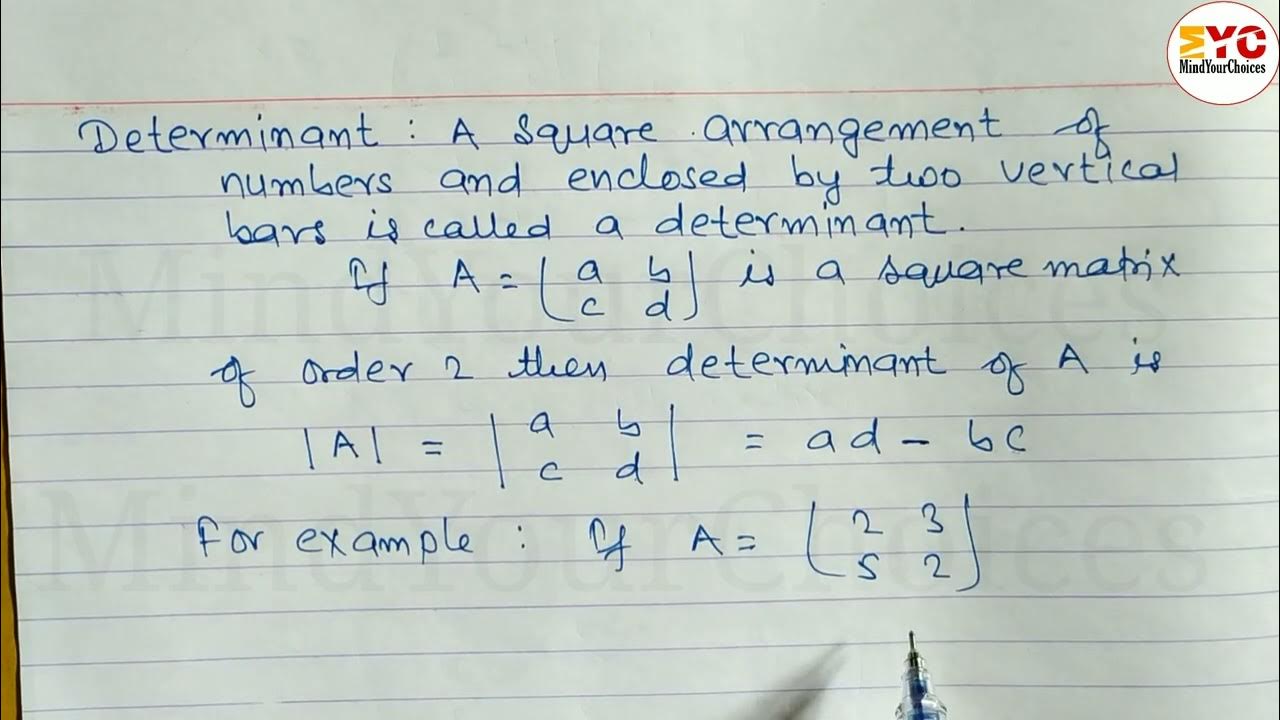 MYC
MindYourChoices
Determinant : A square arrangement of
numbers and enclosed by two vertical
bars is called a determinant.
If A = [a b
c d] is a square matrix
of order 2 then determinant of A is
|A| = |a b
c d| = ad - bc
For example : If A = [2 3
5 2]
MindYourChoices
MindYourChoices